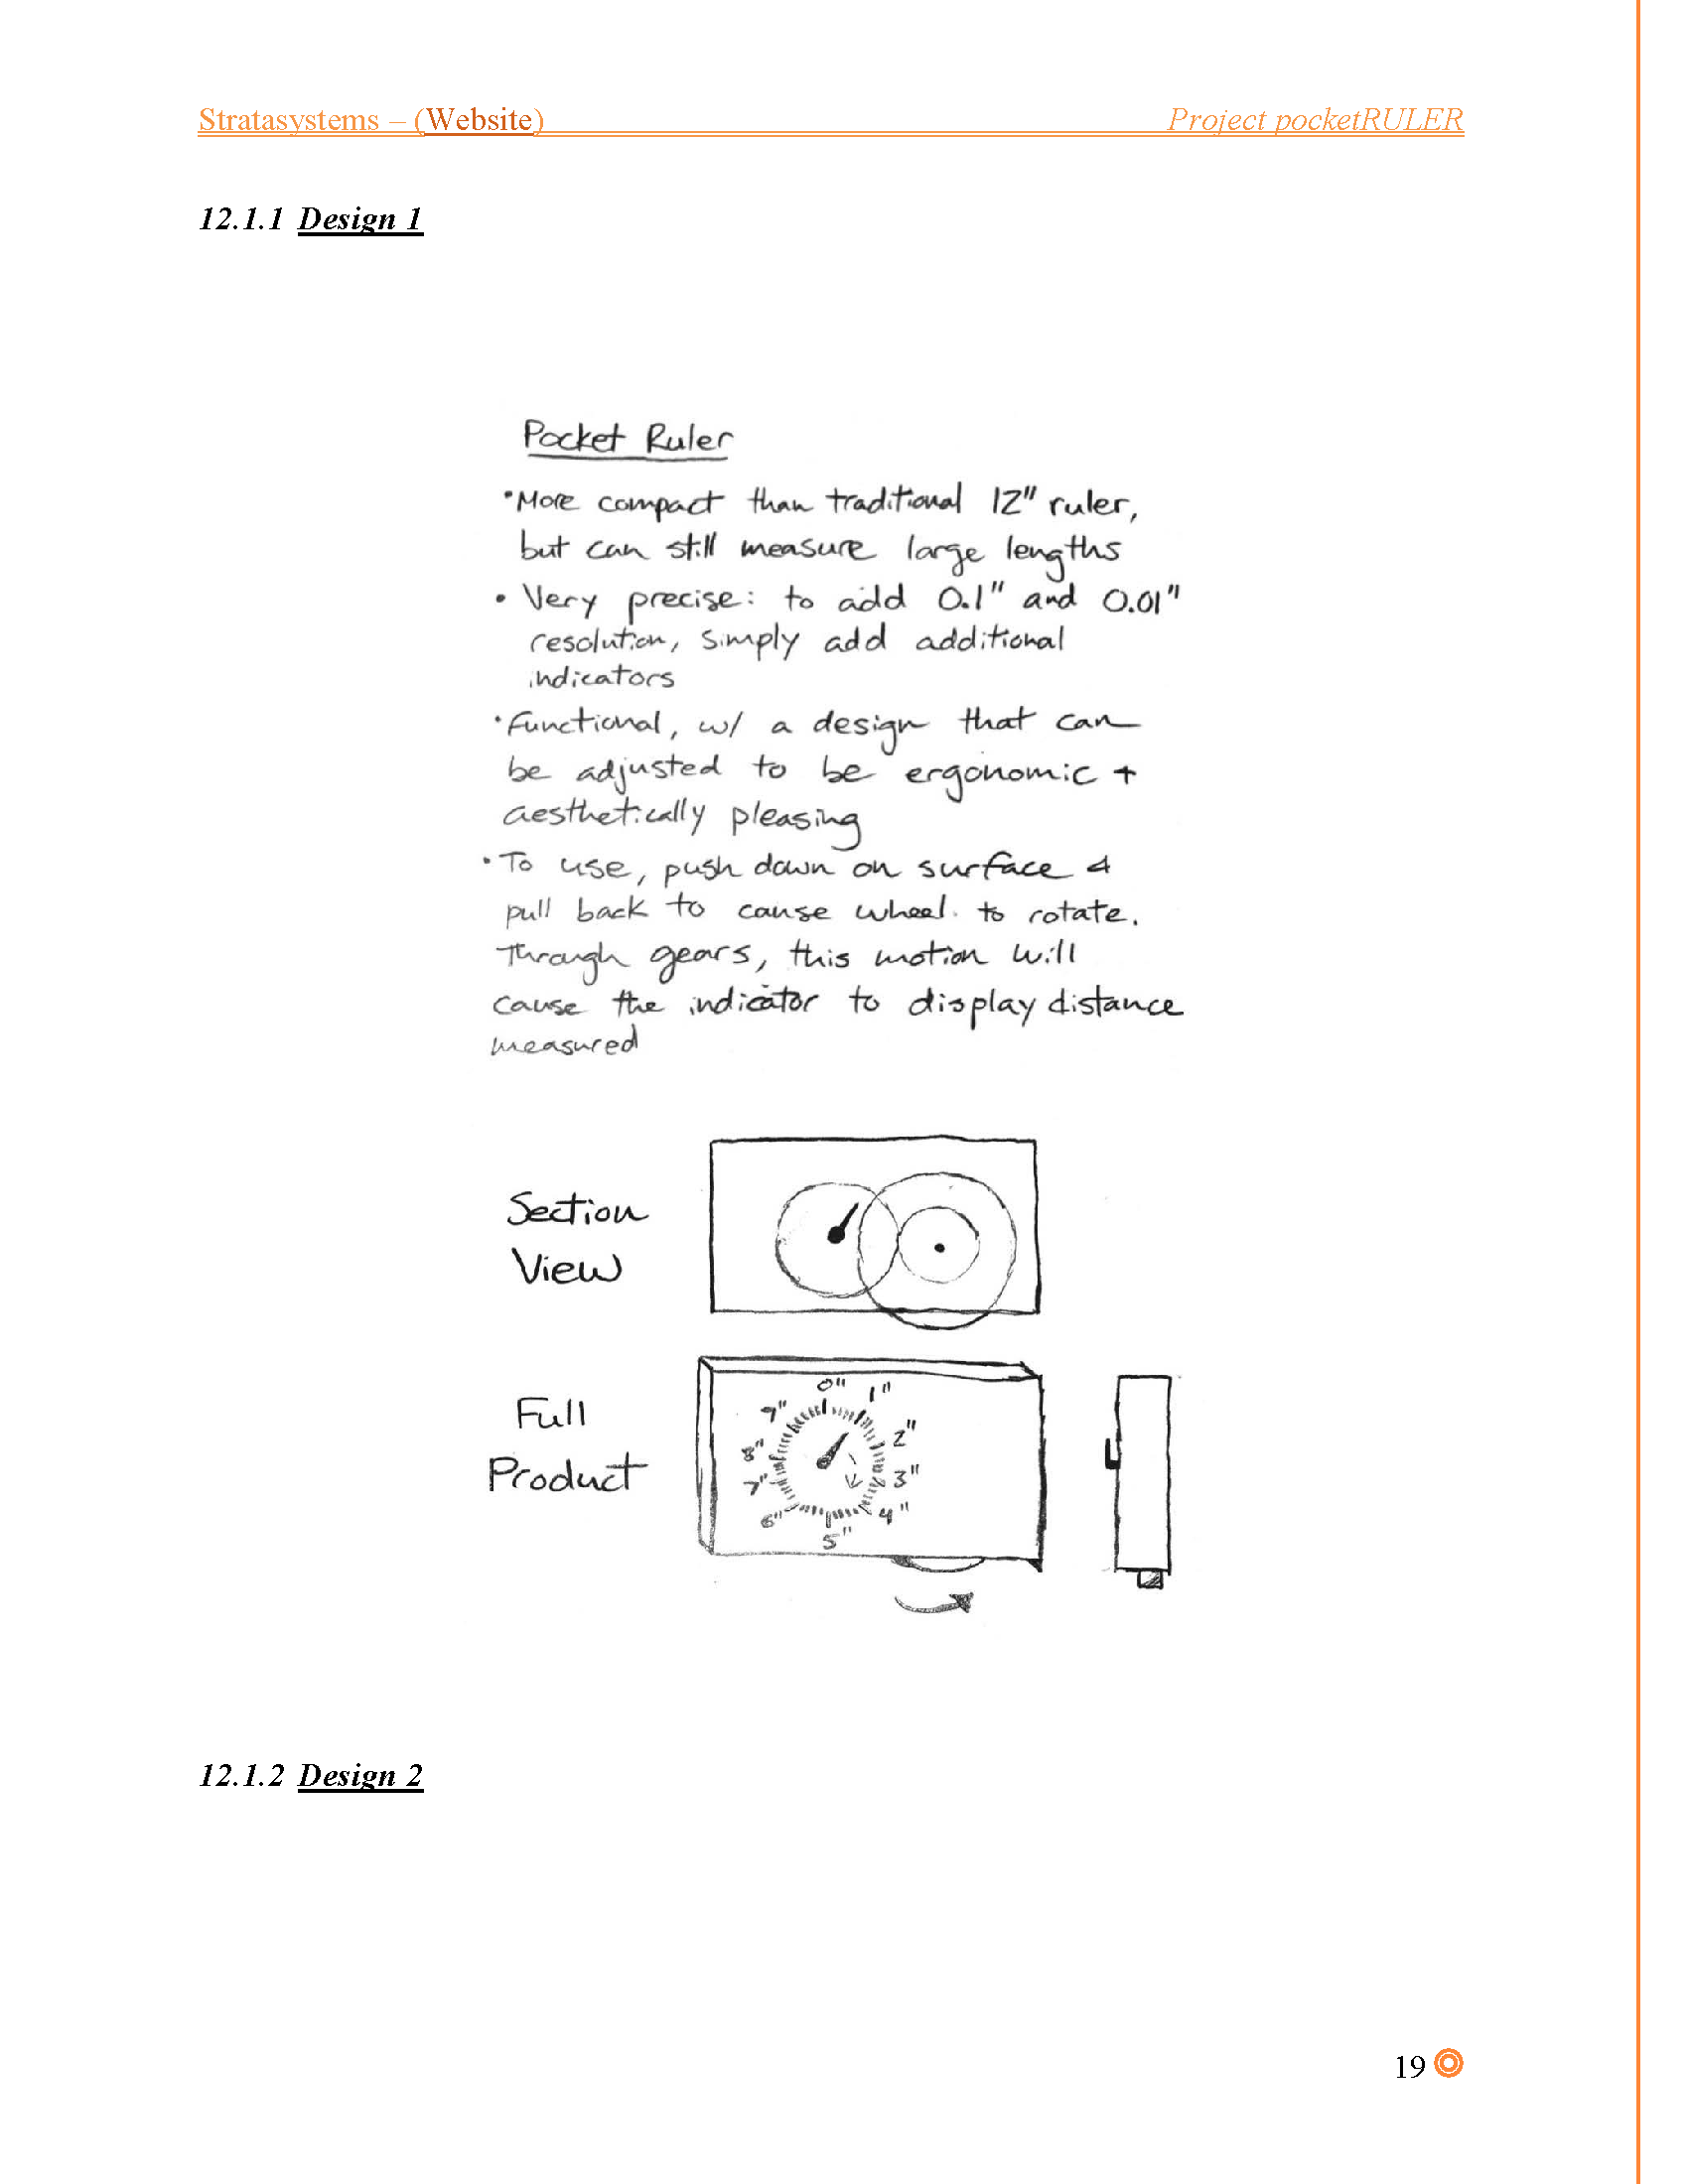 Stratasystems – (Website) Project pocketRULER
12.1.1 Design 1
Pocket Ruler
•More compact than traditional 12" ruler,
but can still measure large lengths
• Very precise: to add 0.1" and 0.01"
resolution, simply add additional
indicators
•Functional, w/ a design that can
be adjusted to be ergonomic +
aesthetically pleasing
•To use, push down on surface &
pull back to cause wheel to rotate.
Through gears, this motion will
cause the indicator to display distance
measured
Section
View
Full
Product
0"
1"
2"
3"
4"
5"
6"
7"
8"
9"
12.1.2 Design 2
19